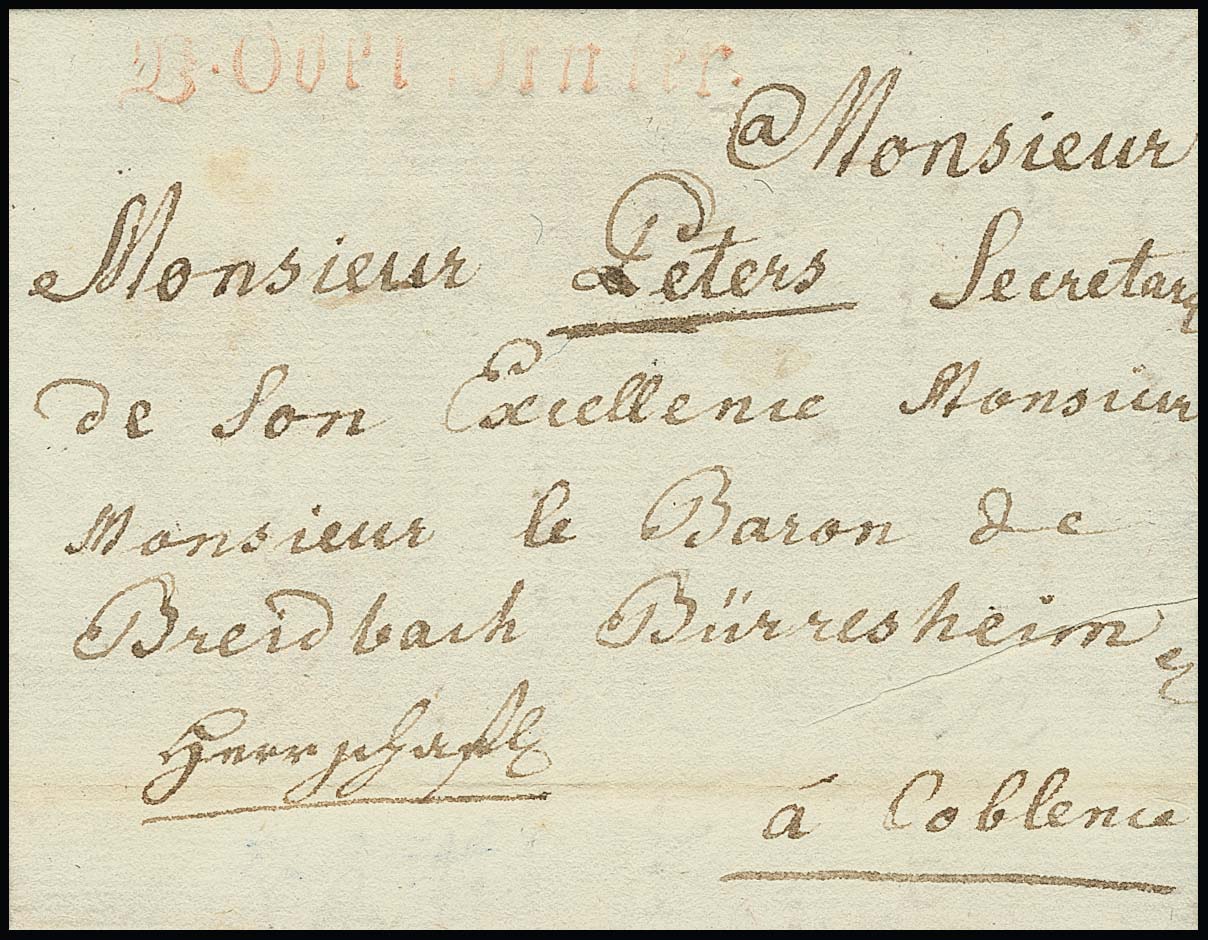 V. Oberwinter.
a Monsieur
Monsieur Peters Secretary
de Son Excellence Monsieur
Monsieur le Baron de
Breidbach Bürresheim
Herrschaftl
á Coblence